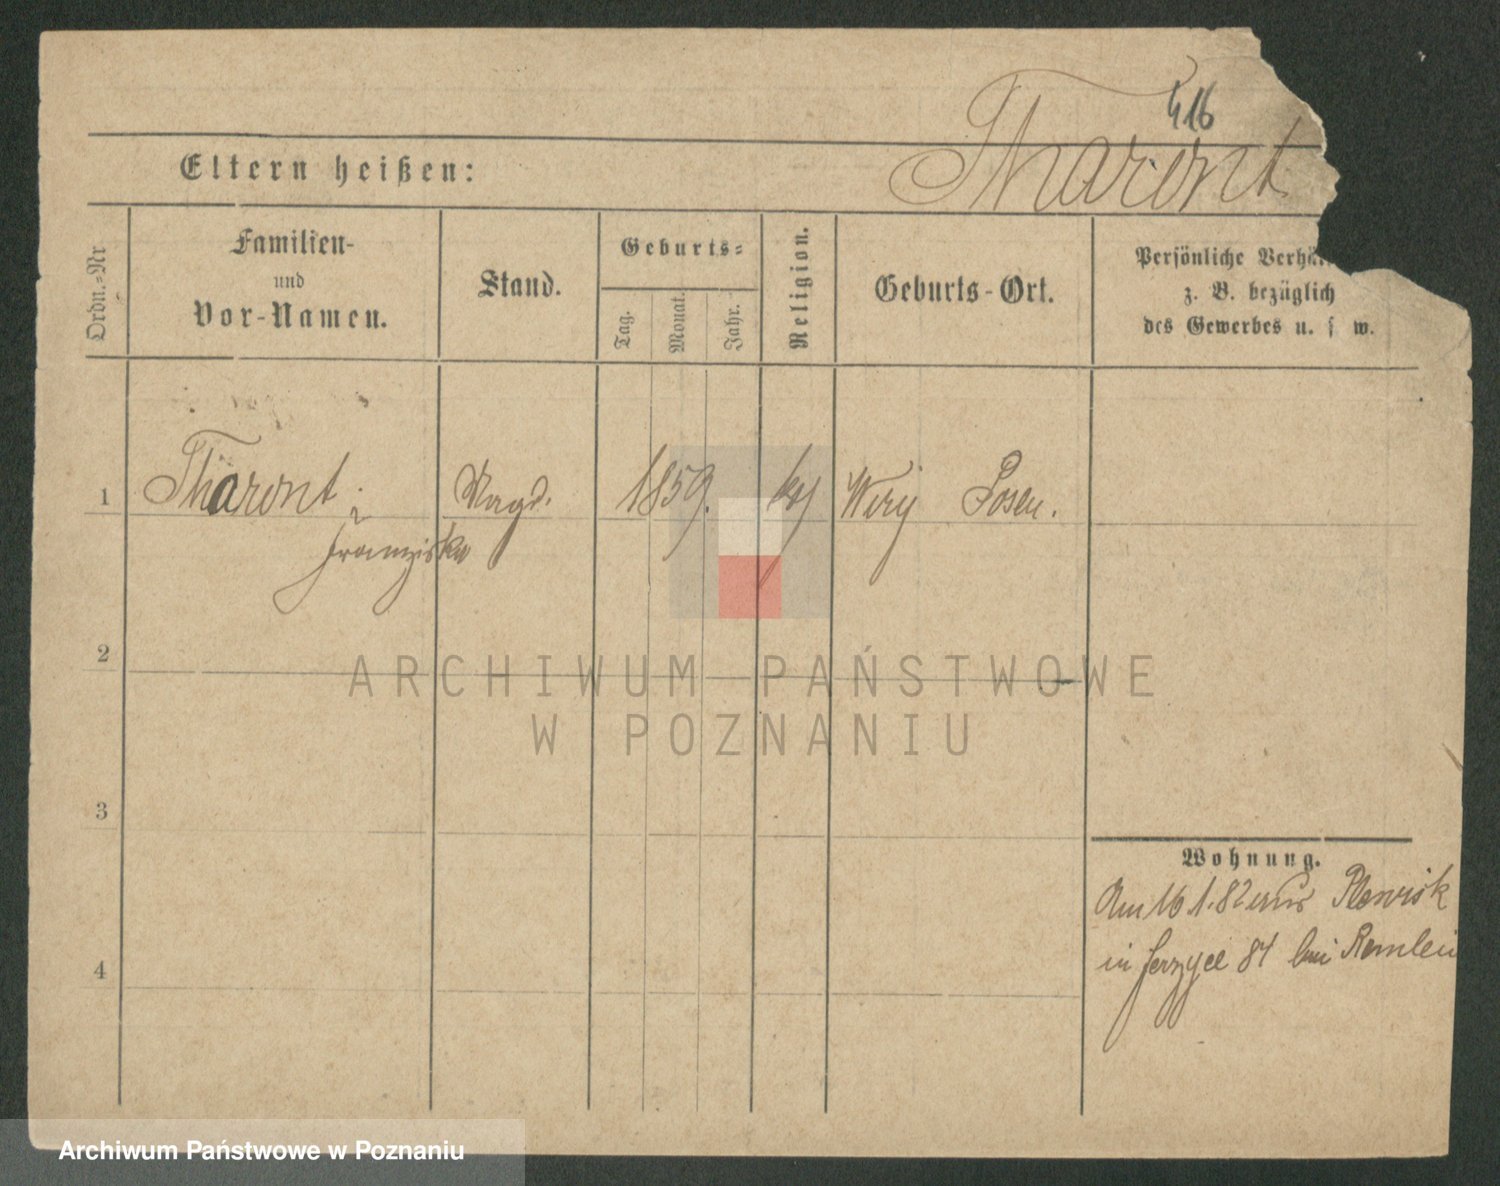 416
Tharont
Eltern heißen:
Ordn.-Nr
Familien-
und
Vor-Namen.
Stand.
Geburts-
Tag.
Monat.
Jahr.
Religion.
Geburts-Ort.
Persönliche Verhä
z. B. bezüglich
des Gewerbes u. s w.
1
Tharont
Franziska
Magd.
1859.
Posen.
2
3
4
Wohnung.
Am 16 1.82 aus Plewisk
in Jerzyce 84 bei Remlein
ARCHIWUM PAŃSTWOWE
W POZNANIU
Archiwum Państwowe w Poznaniu